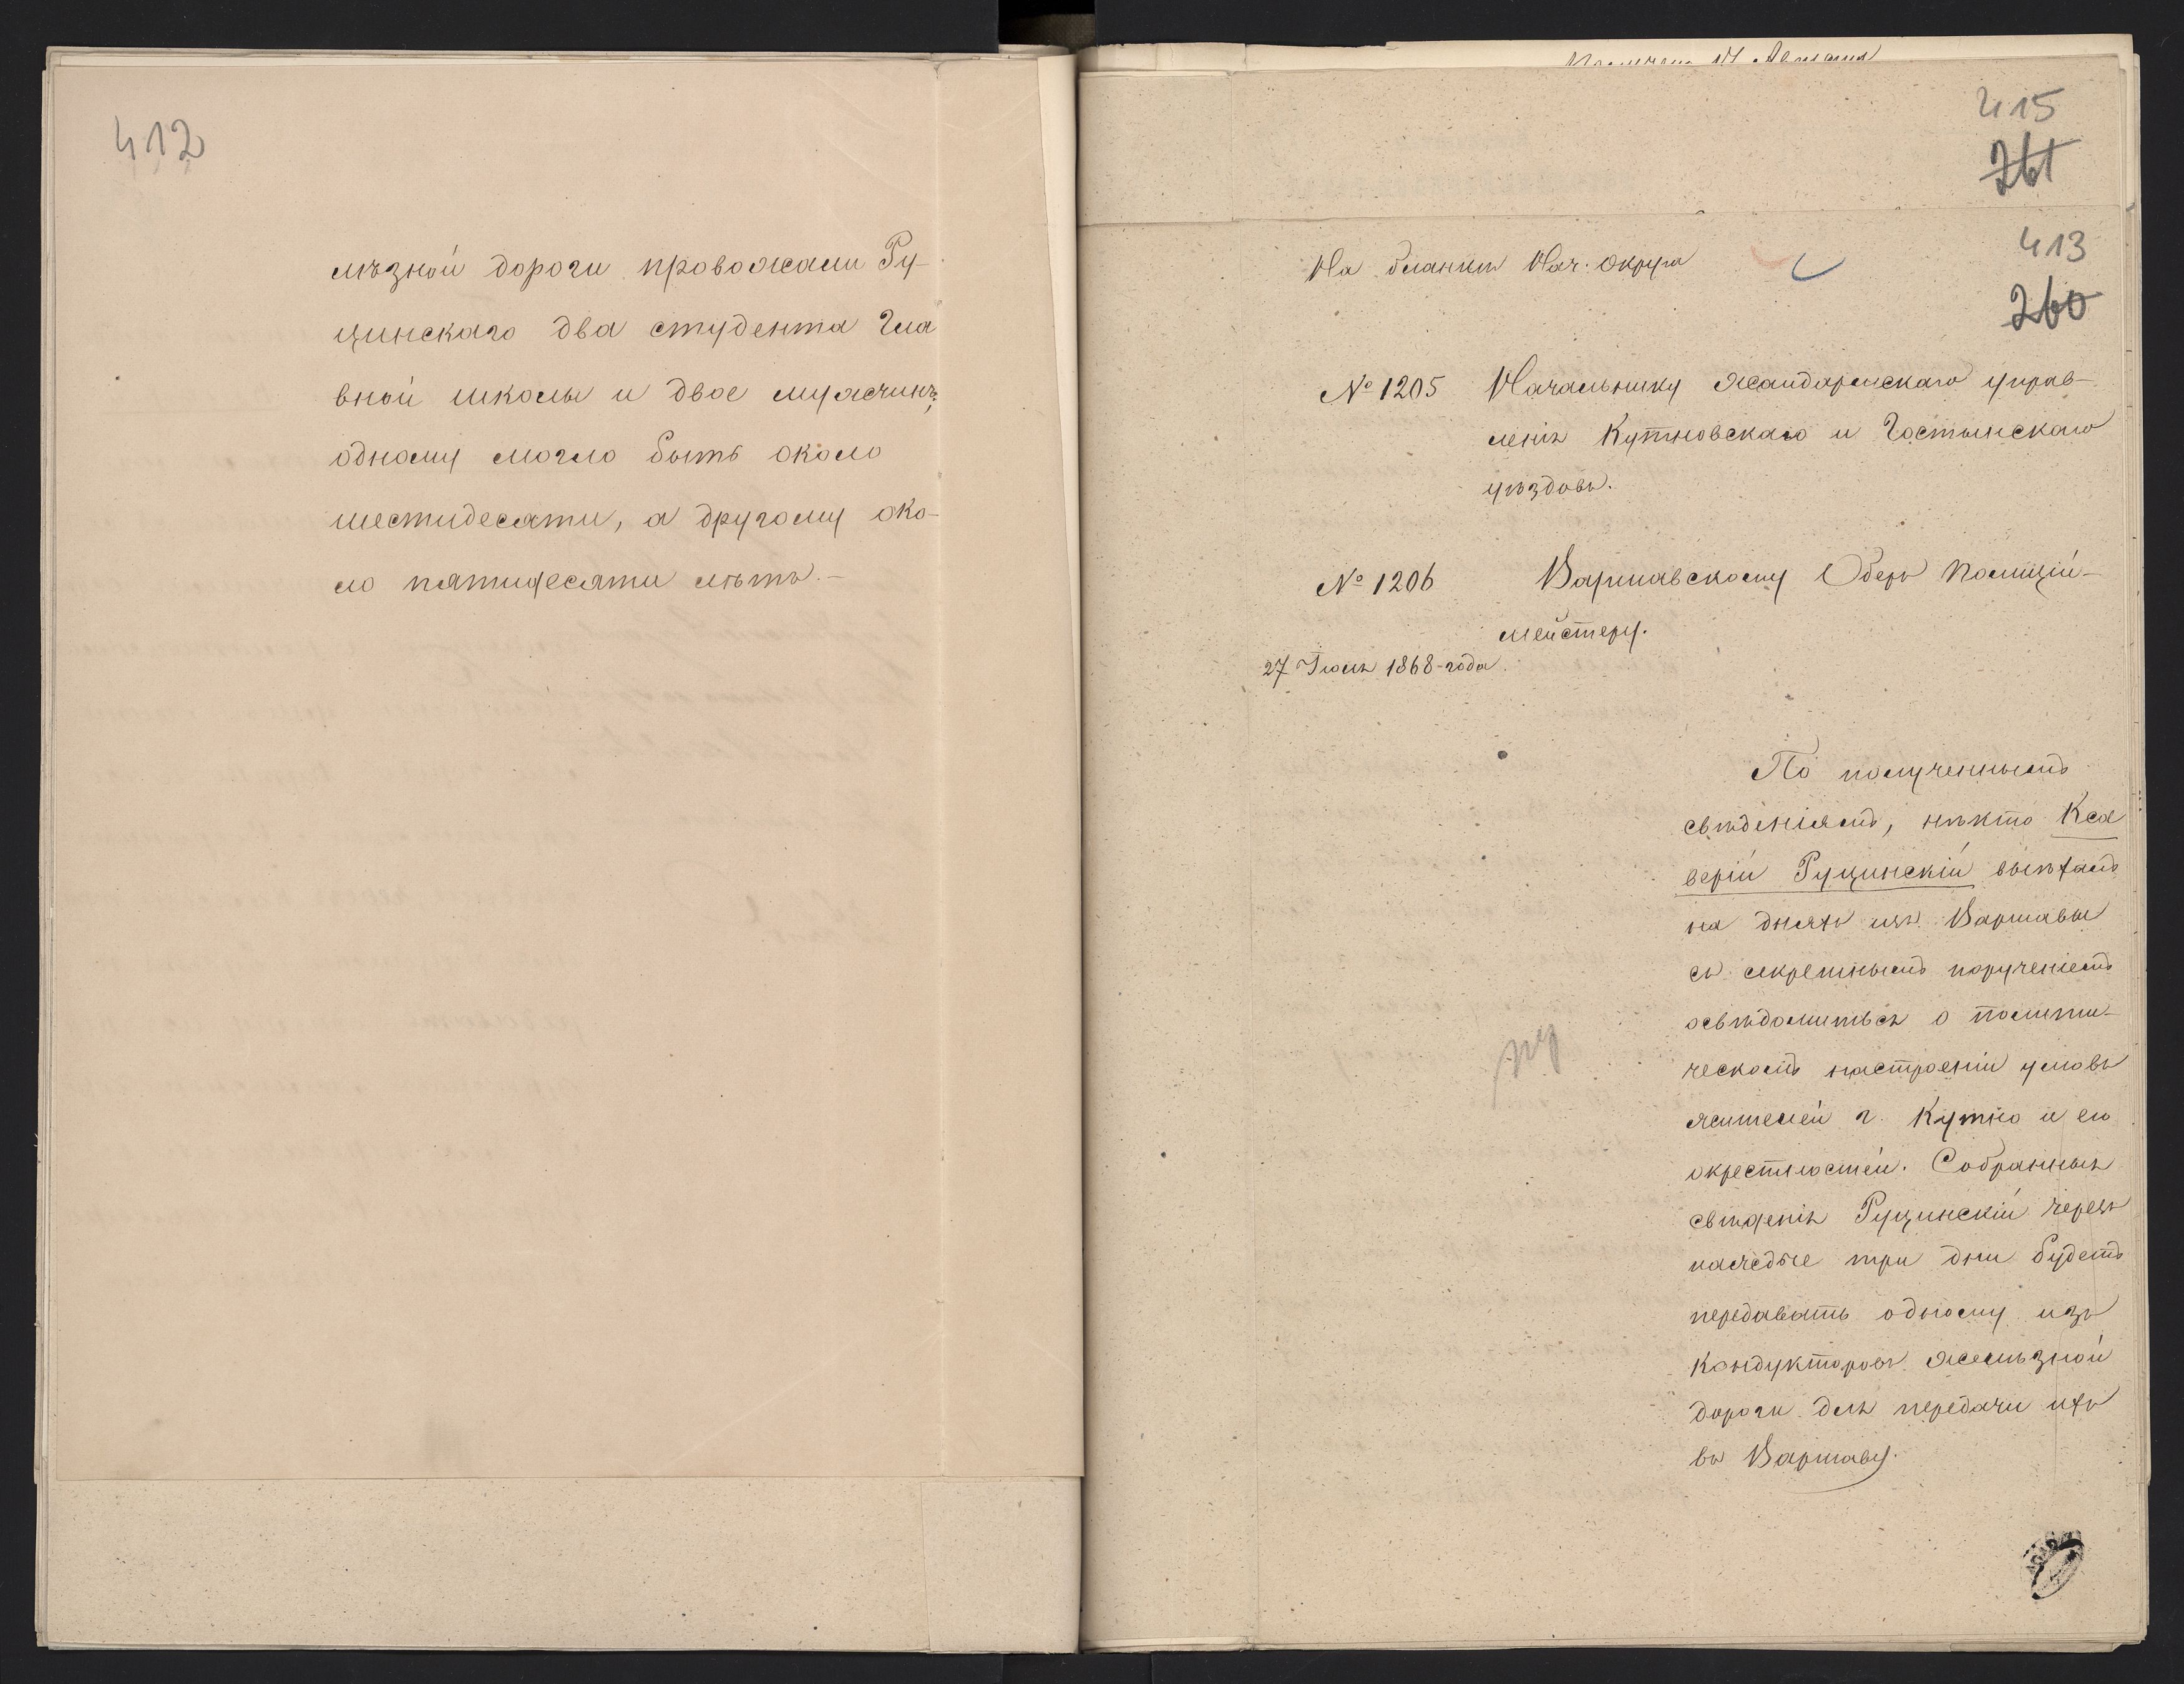 412
лѣзной дороги провожали Ру-
цинскаго два студента Гла
вной школы и двое мужчинъ,
одному могло быть около
шестидесяти, а другому око-
ло пятидесяти лѣтъ.—
415
261
413
260
На бланкѣ Нач. Округа
№ 1205 Начальнику жандармскаго управ-
ленія Кутновскаго и Гостынскаго
уѣздовъ.
№ 1206 Варшавскому Оберъ Полиціи-
мейстеру.
27 Іюля 1868-года.
По полученнымъ
свѣденіямъ, нѣкто Кса
верій Руцинскій выѣхалъ
на дняхъ изъ Варшавы
съ секретнымъ порученіемъ
освѣдомиться о полити-
ческомъ настроеніи умовъ
жителей г. Кутно и его
окрестностей. Собранныя
свѣденія Руцинскій черезъ
каждые три дни будетъ
передавать одному изъ
Кондукторовъ желѣзной
дороги для передачи ихъ
въ Варшаву.